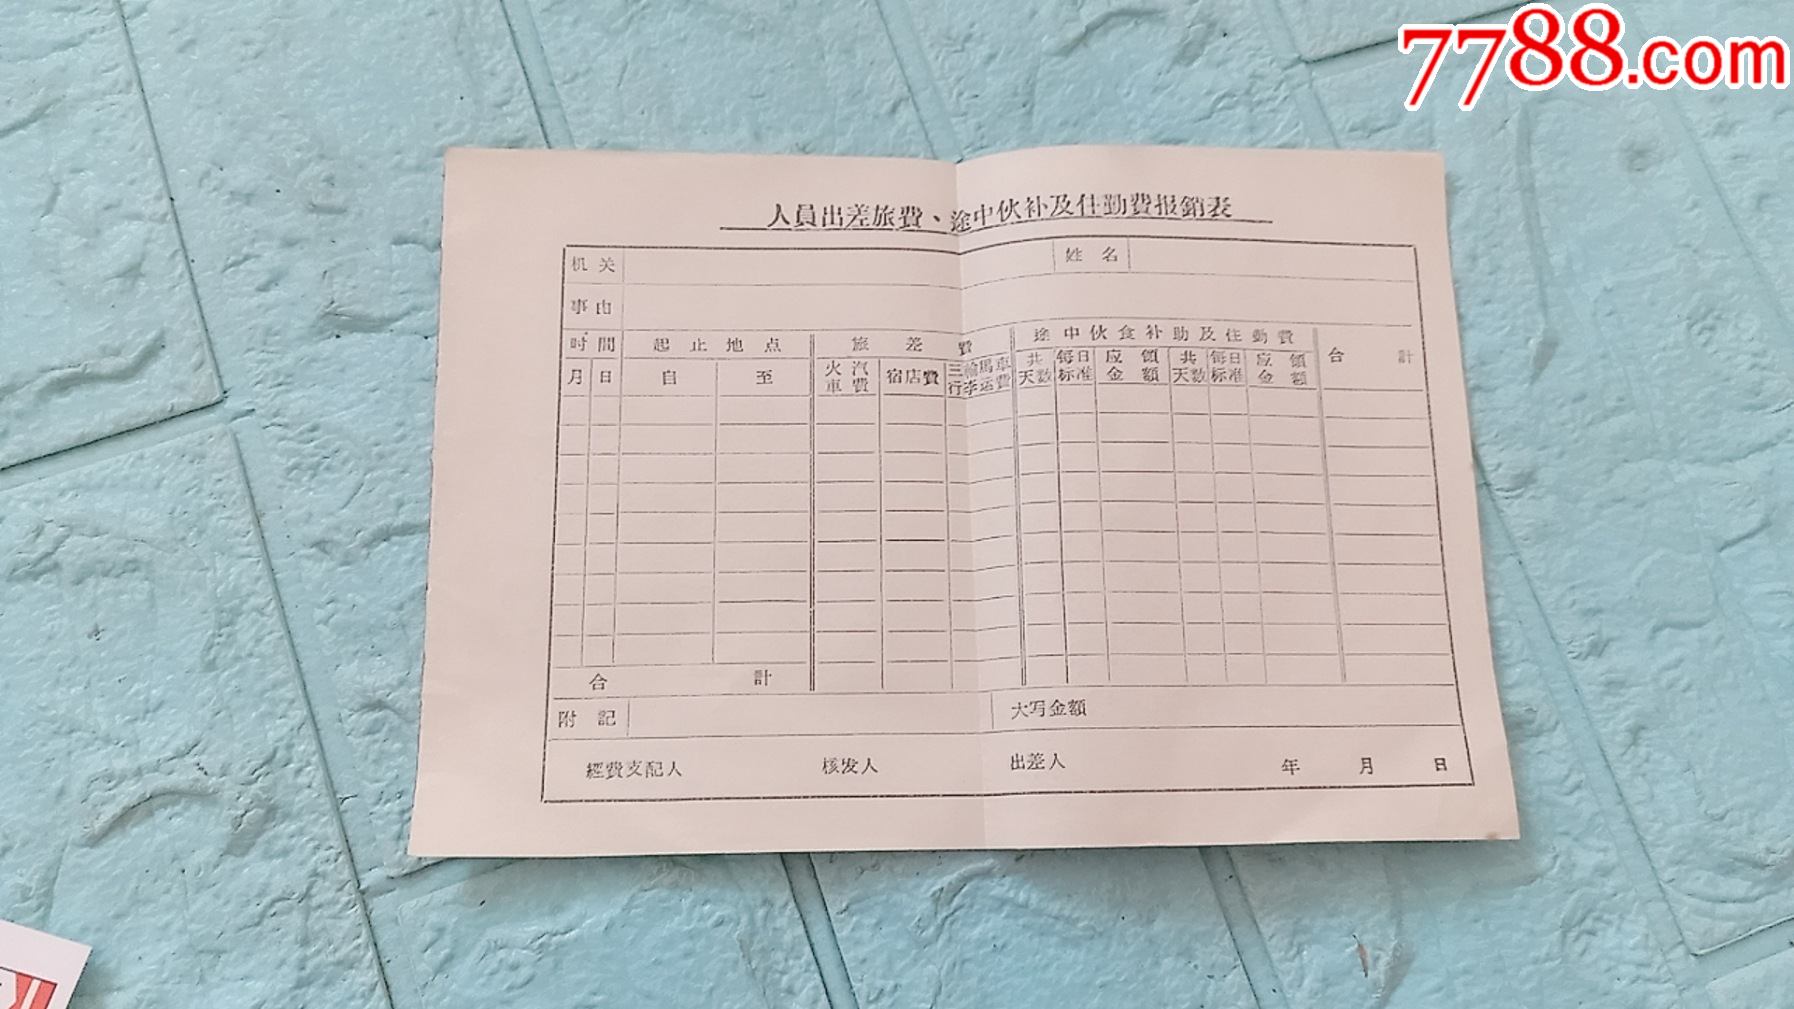 7788.com
人員出差旅費、途中伙补及住勤費报銷表
机关 姓名
事由
时間 起止地点 旅差費 途中伙食补助及住勤費 合計
月 日 自 至 火汽車費 宿店費 三輪馬車行李运費 共天数 每日标准 应領金額 共天数 每日标准 应領金額
合計
附記 大写金額
經費支配人 核发人 出差人 年 月 日